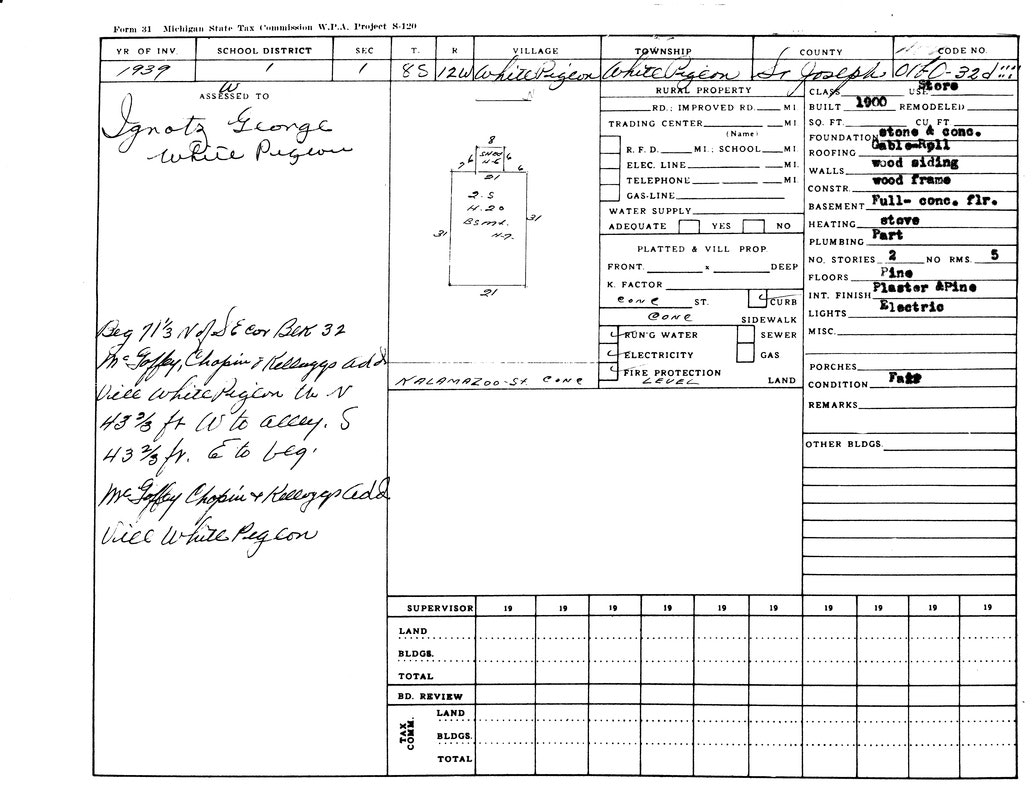 Form 31 Michigan State Tax Commission W.P.A. Project S-120
YR OF INV. SCHOOL DISTRICT SEC T. R VILLAGE TOWNSHIP COUNTY CODE NO.
1939 1 1 8S 12W White Pigeon White Pigeon St Joseph
W
ASSESSED TO
Ignatz George
White Pigeon
Beg 71 1/3 N of SE cor Blk 32
McGaffey, Chapin & Kelloggs add
Vill White Pigeon th N
43 2/3 ft W to alley. S
43 2/3 ft. E to beg.
McGaffey Chapin & Kelloggs add
Vill White Pigeon
N
8
7 6 SHED 6 6
H-6
21
2.S
H.20
BSMt.
H-7.
31 31
21
KALAMAZOO-St. CONC
RURAL PROPERTY
RD.; IMPROVED RD. MI
TRADING CENTER MI
(Name)
R.F.D. MI.; SCHOOL MI.
ELEC. LINE MI.
TELEPHONE MI
GAS-LINE
WATER SUPPLY
ADEQUATE YES NO
PLATTED & VILL PROP.
FRONT. x DEEP
K. FACTOR
CONC ST. CURB
CONC SIDEWALK
RUN'G WATER SEWER
ELECTRICITY GAS
FIRE PROTECTION
LEVEL LAND
CLASS USE Store
BUILT 1900 REMODELED
SQ. FT. CU. FT.
FOUNDATION stone & conc.
ROOFING Gable-Roll
WALLS wood siding
CONSTR. wood frame
BASEMENT Full- conc. flr.
HEATING stove
PLUMBING Part
NO. STORIES 2 NO RMS. 5
FLOORS Pine
INT. FINISH Plaster &Pine
LIGHTS Electric
MISC.
PORCHES
CONDITION Fair
REMARKS
OTHER BLDGS.
SUPERVISOR 19 19 19 19 19 19 19 19 19 19
LAND
BLDGS.
TOTAL
BD. REVIEW
TAX COMM.
LAND
BLDGS.
TOTAL